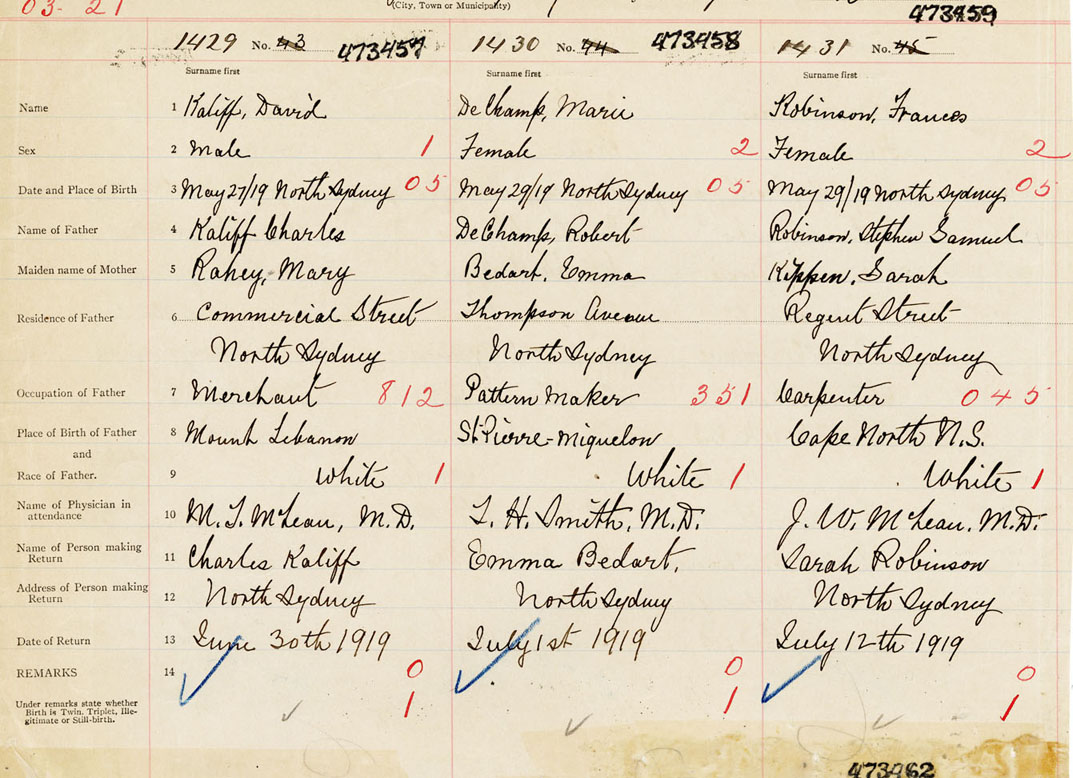 03- 21
(City, Town or Municipality)
473459
1429 No. 43 473457 1430 No. 44 473458 1431 No. 45
Surname first Surname first Surname first
Name 1 Kaliff, David DeChamp, Marie Robinson, Frances
Sex 2 Male 1 Female 2 Female 2
Date and Place of Birth 3 May 27/19 North Sydney 05 May 29/19 North Sydney 05 May 29/19 North Sydney 05
Name of Father 4 Kaliff Charles DeChamps, Robert Robinson, Stephen Samuel
Maiden name of Mother 5 Rahey, Mary Bedart, Emma Kippen, Sarah
Residence of Father 6 Commercial Street Thompson Avenue Regent Street
North Sydney North Sydney North Sydney
Occupation of Father 7 Merchant 812 Pattern Maker 351 Carpenter 045
Place of Birth of Father 8 Mount Lebanon St-Pierre-Miquelon Cape North N.S.
and
Race of Father. 9 White 1 White 1 White 1
Name of Physician in
attendance 10 M. T. McLean, M.D. L. H. Smith, M.D. J. W. McLean, M.D.
Name of Person making
Return 11 Charles Kaliff Emma Bedart, Sarah Robinson
Address of Person making
Return 12 North Sydney North Sydney North Sydney
Date of Return 13 June 30th 1919 July 1st 1919 July 12th 1919
REMARKS 14 0 0 0
Under remarks state whether
Birth is Twin, Triplet, Ille-
gitimate or Still-birth. 1 1 1
473462